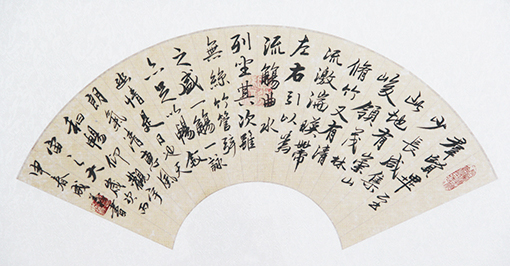 羣賢畢至
少長咸集
此地有崇山
峻領茂林
脩竹又有清
流激湍暎帶
左右引以為
流觴曲水
列坐其次雖
無絲竹管弦
之盛一觴一詠
亦足以暢敘
幽情是日也天
朗氣清惠風
和暢仰觀宇
宙之大